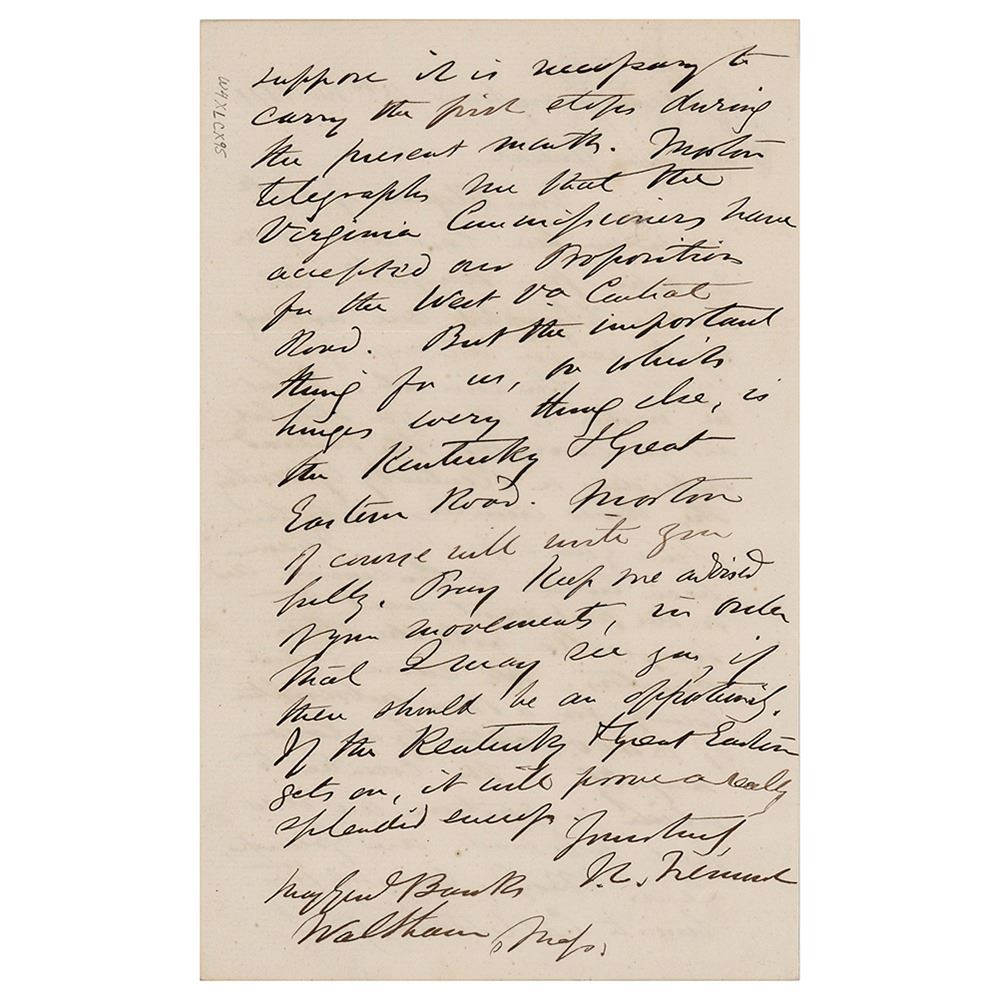 suppose it is necessary to
carry the first steps during
the present month. Morton
telegraphs me that the
Virginia Commissioners have
accepted our Proposition
for the West Va Central
Road. But the important
thing for us, on which
hinges every thing else, is
the Kentucky & Great
Eastern Road. Morton
of course will write you
fully. Pray keep me advised
of your movements, in order
that I may see you, if
there should be an opportunity.
If the Kentucky & Great Eastern
gets on, it will prove a really
splendid success.
Yours truly,
J. C. Frémont
Maj Genl Banks
Waltham, Mass.
W4XLCX95